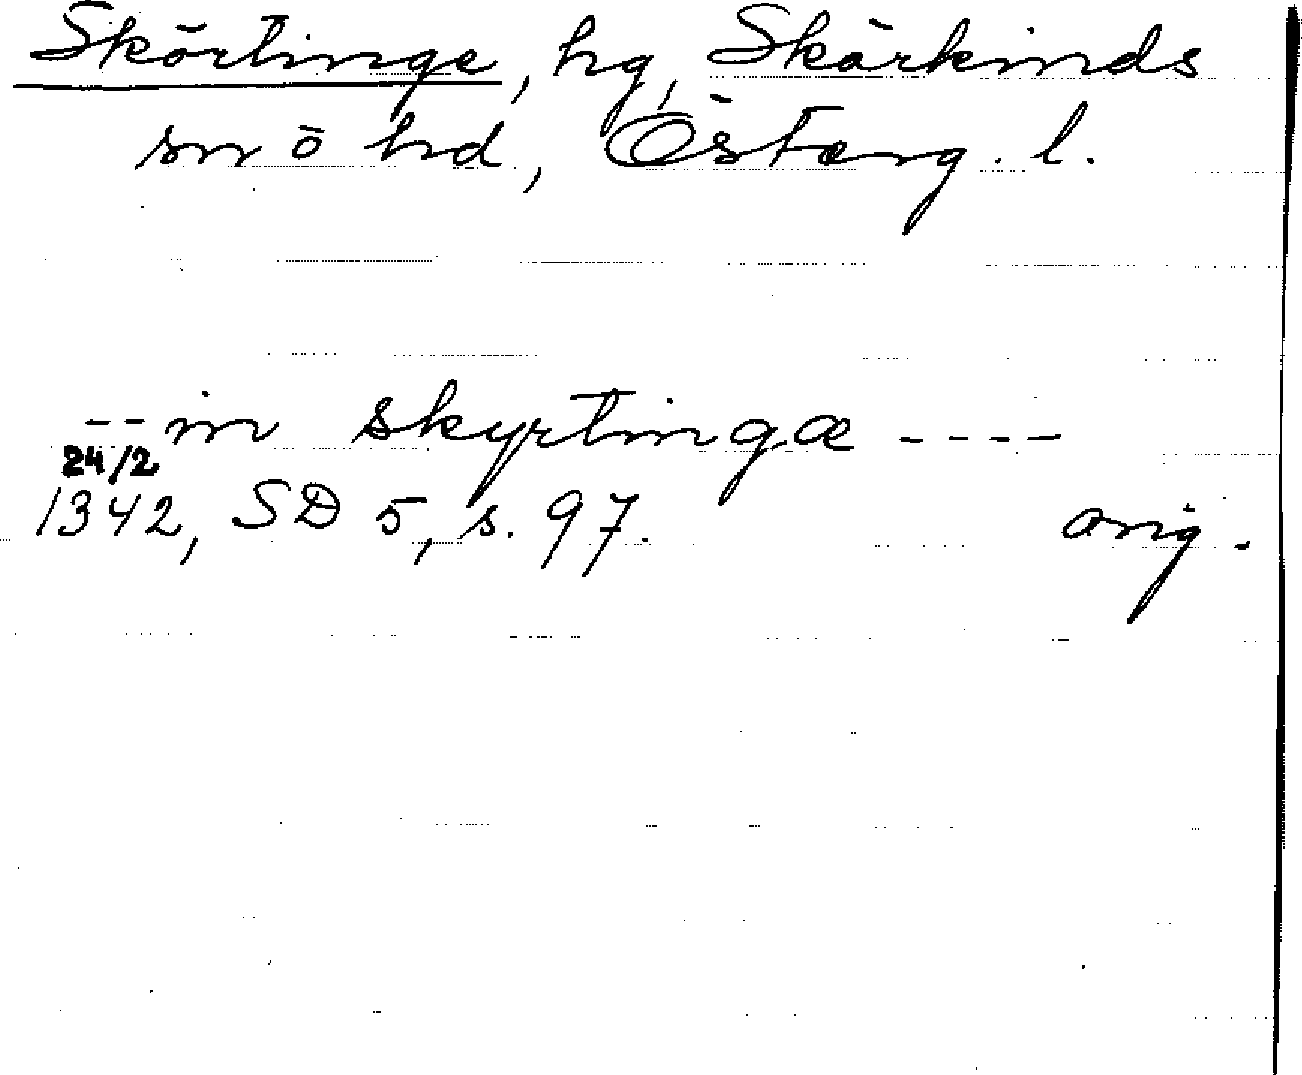 Skörtinge, hg, Skärkinds
sn o hd, Österg. l.
-- in skyrtingæ ----
24/2
1342, SD 5, s. 97. orig.